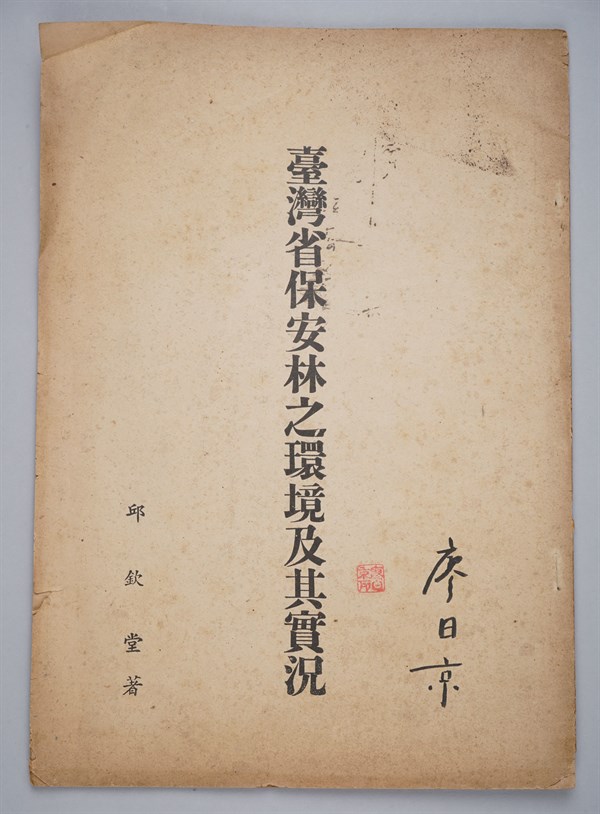 廖日京
臺灣省保安林之環境及其實況
邱欽堂著